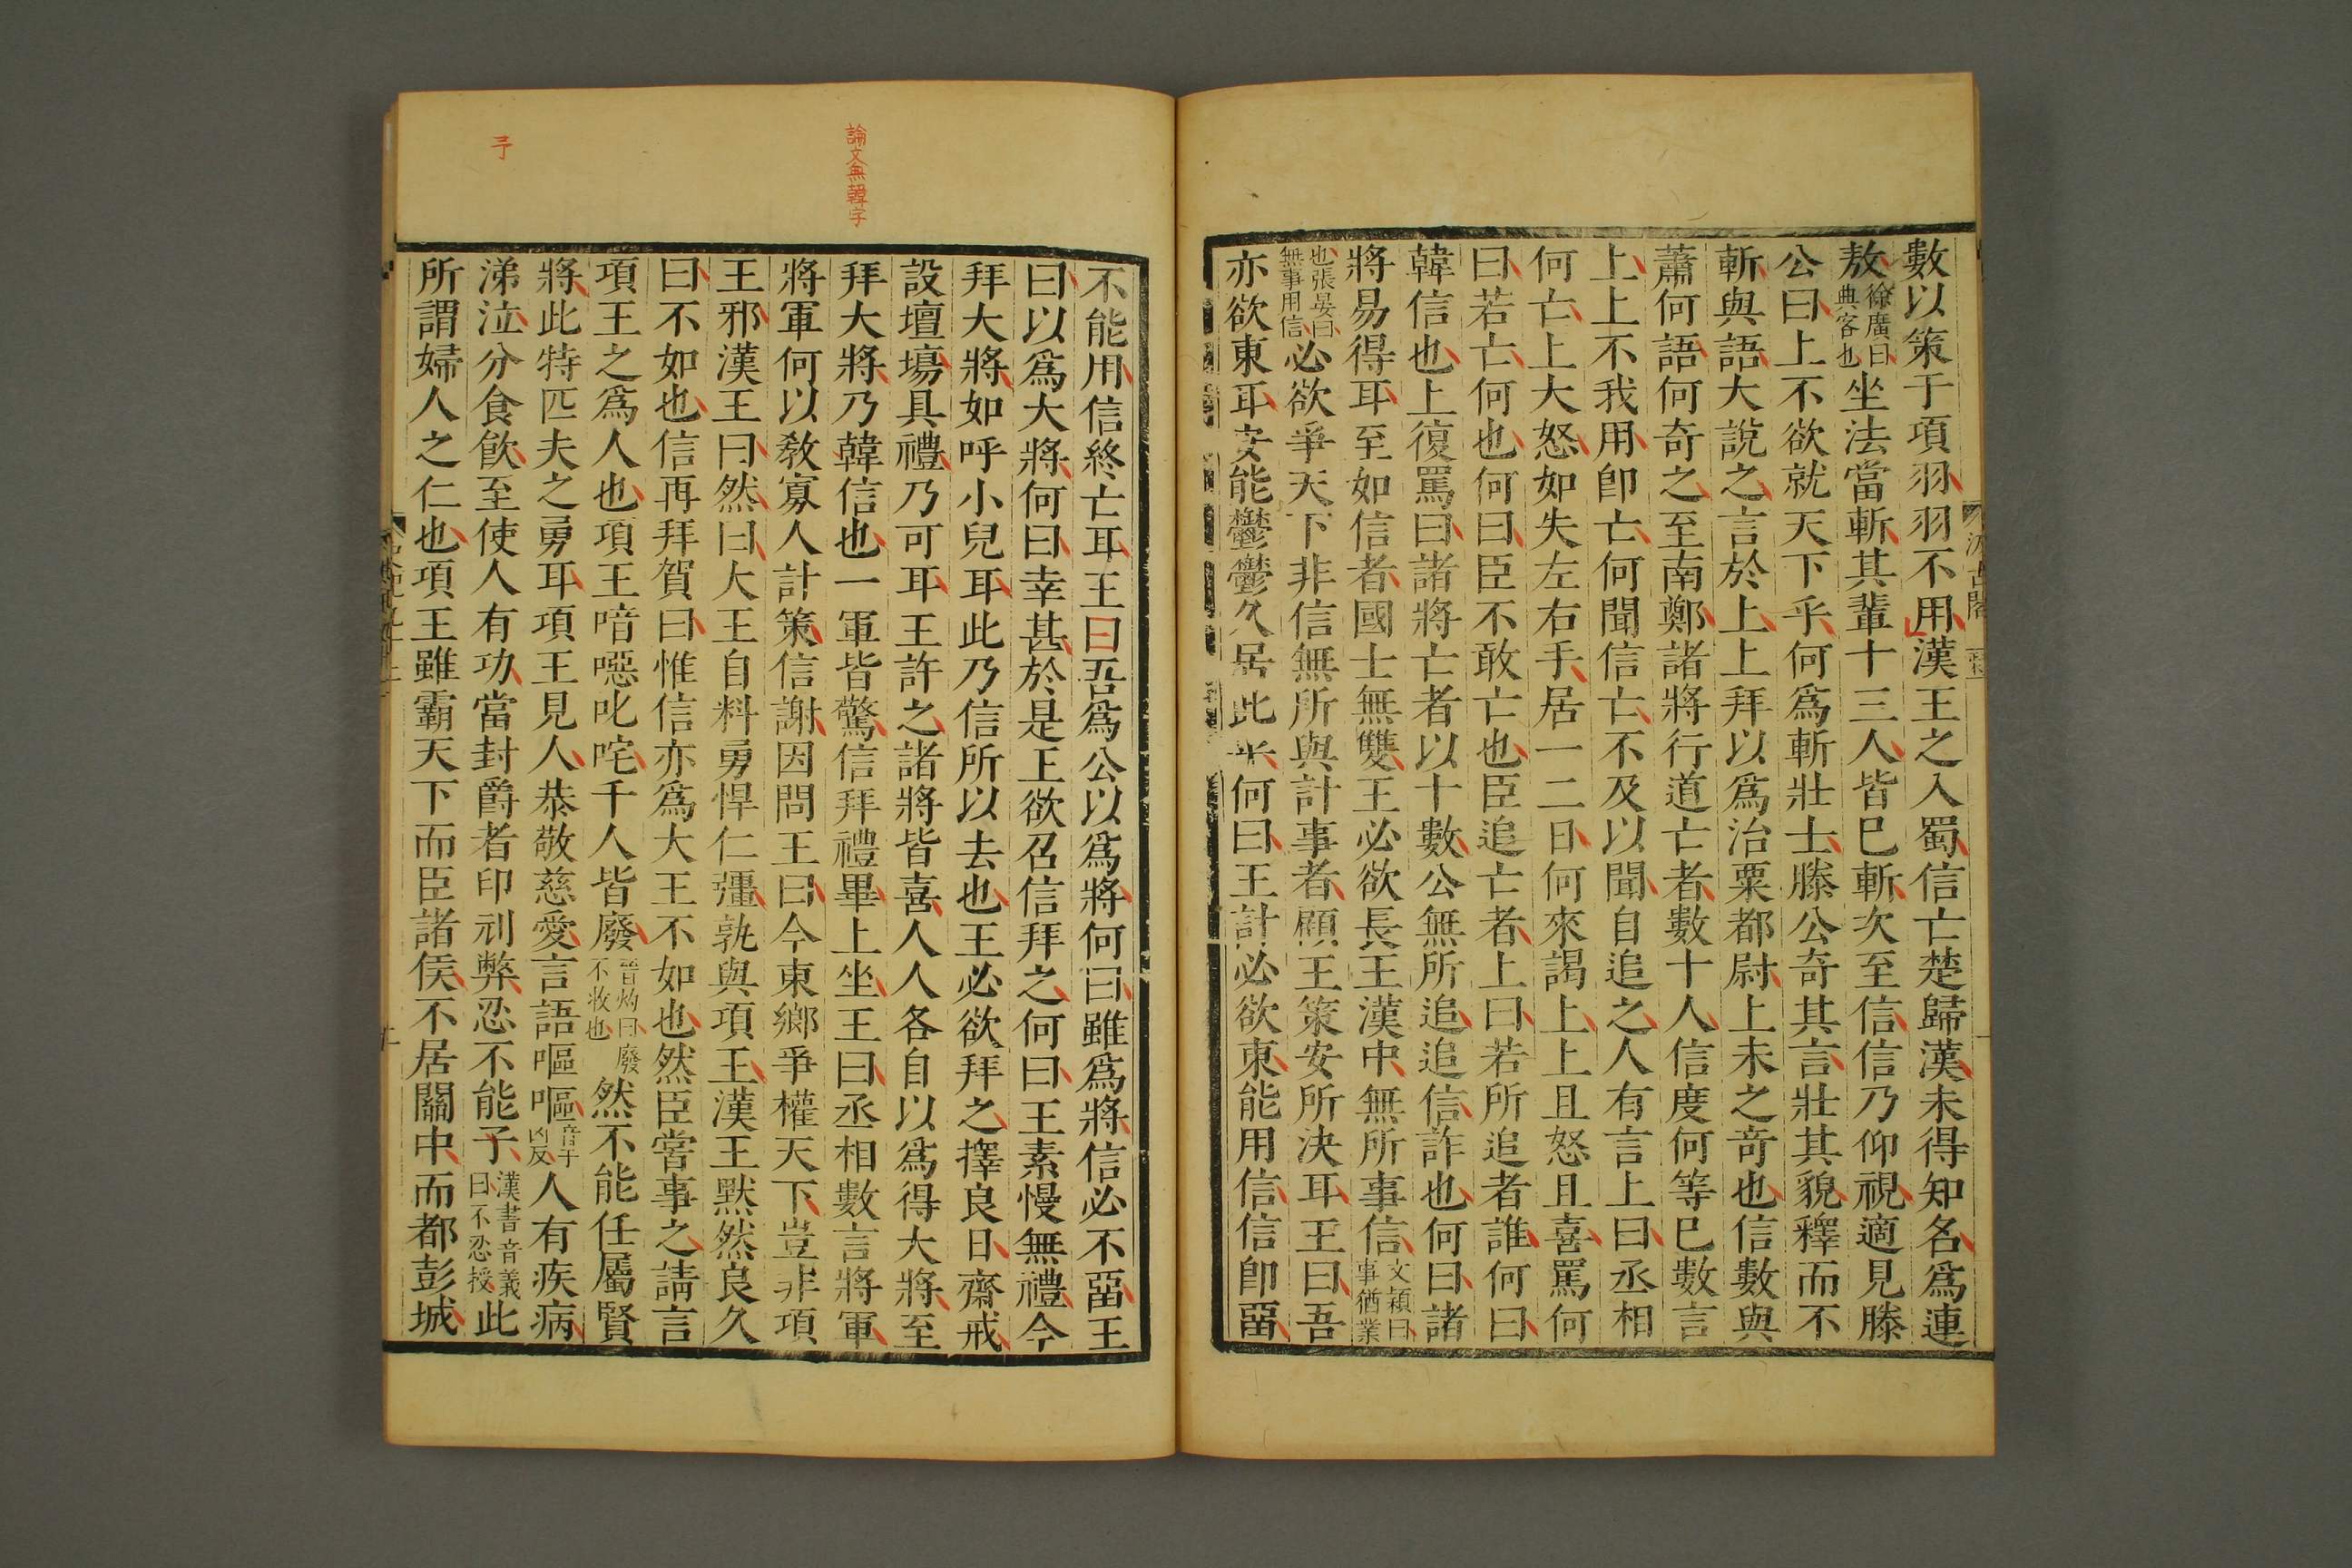 數以策于項羽羽不用漢王之入蜀信亡楚歸漢未得知名爲連
敖徐廣曰典客也坐法當斬其輩十三人皆巳斬次至信信乃仰視適見滕
公曰上不欲就天下乎何爲斬壯士滕公奇其言壯其貌釋而不
斬與語大說之言於上上拜以爲治粟都尉上未之奇也信數與
蕭何語何奇之至南鄭諸將行道亡者數十人信度何等巳數言
上上不我用卽亡何聞信亡不及以聞自追之人有言上曰丞相
何亡上大怒如失左右手居一二日何來謁上上且怒且喜罵何
曰若亡何也何曰臣不敢亡也臣追亡者上曰若所追者誰何曰
韓信也上復罵曰諸將亡者以十數公無所追追信詐也何曰諸
將易得耳至如信者國士無雙王必欲長王漢中無所事信文穎曰事猶業
也張晏曰無事用信必欲爭天下非信無所與計事者顧王策安所決耳王曰吾
亦欲東耳安能鬱鬱久居此乎何曰王計必欲東能用信信卽畱
汲古閣
論文無韓字
不能用信終亡耳王曰吾爲公以爲將何曰雖爲將信必不畱王
曰以爲大將何曰幸甚於是王欲召信拜之何曰王素慢無禮今
拜大將如呼小兒耳此乃信所以去也王必欲拜之擇良日齋戒
設壇塲具禮乃可耳王許之諸將皆喜人人各自以爲得大將至
拜大將乃韓信也一軍皆驚信拜禮畢上坐王曰丞相數言將軍
將軍何以敎寡人計策信謝因問王曰今東鄉爭權天下豈非項
王邪漢王曰然曰大王自料勇悍仁彊孰與項王漢王默然良久
曰不如也信再拜賀曰惟信亦爲大王不如也然臣嘗事之請言
項王之爲人也項王喑噁叱咤千人皆廢晉灼曰廢不收也然不能任屬賢
將此特匹夫之勇耳項王見人恭敬慈愛言語嘔嘔音于凶反人有疾病
涕泣分食飮至使人有功當封爵者印刓弊忍不能予漢書音義曰不忍授此
所謂婦人之仁也項王雖霸天下而臣諸侯不居關中而都彭城